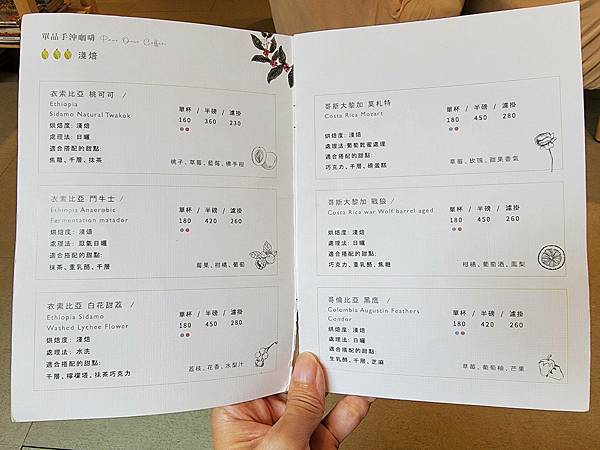 單品手沖咖啡 Pour Over Coffee
淺焙
衣索比亞 桃可可 /
Ethiopia
Sidamo Natural Twakok
單杯 / 半磅 / 濾掛
160 360 230
烘焙度: 淺焙
處理法: 日曬
適合搭配的甜點:
焦糖、千層、抹茶
桃子、草莓、藍莓、佛手柑
衣索比亞 鬥牛士 /
Ethiopia Anaerobic
Fermentation matador
單杯 / 半磅 / 濾掛
180 420 260
烘焙度: 淺焙
處理法: 厭氧日曬
適合搭配的甜點:
抹茶、重乳酪、千層
莓果、柑橘、葡萄
衣索比亞 白花甜荔 /
Ethiopia Sidamo
Washed Lychee Flower
單杯 / 半磅 / 濾掛
180 450 280
烘焙度: 淺焙
處理法: 水洗
適合搭配的甜點:
千層、檸檬塔、抹茶巧克力
荔枝、花香、水梨汁
哥斯大黎加 莫札特 /
Costa Rica Mozart
單杯 / 半磅 / 濾掛
180 450 280
烘焙度: 淺焙
處理法: 葡萄乾蜜處理
適合搭配的甜點:
巧克力、千層、磅蛋糕
草莓、玫瑰、甜果香氣
哥斯大黎加 戰狼 /
Costa Rica war Wolf barrel aged
單杯 / 半磅 / 濾掛
180 420 260
烘焙度: 淺焙
處理法: 日曬
適合搭配的甜點:
巧克力、重乳酪、焦糖
柑橘、葡萄酒、鳳梨
哥倫比亞 黑底 /
Colombia Augustin Feathers
Condor
單杯 / 半磅 / 濾掛
180 420 260
烘焙度: 淺焙
處理法: 日曬
適合搭配的甜點:
生乳酪、千層、芝麻
草莓、葡萄柚、芒果